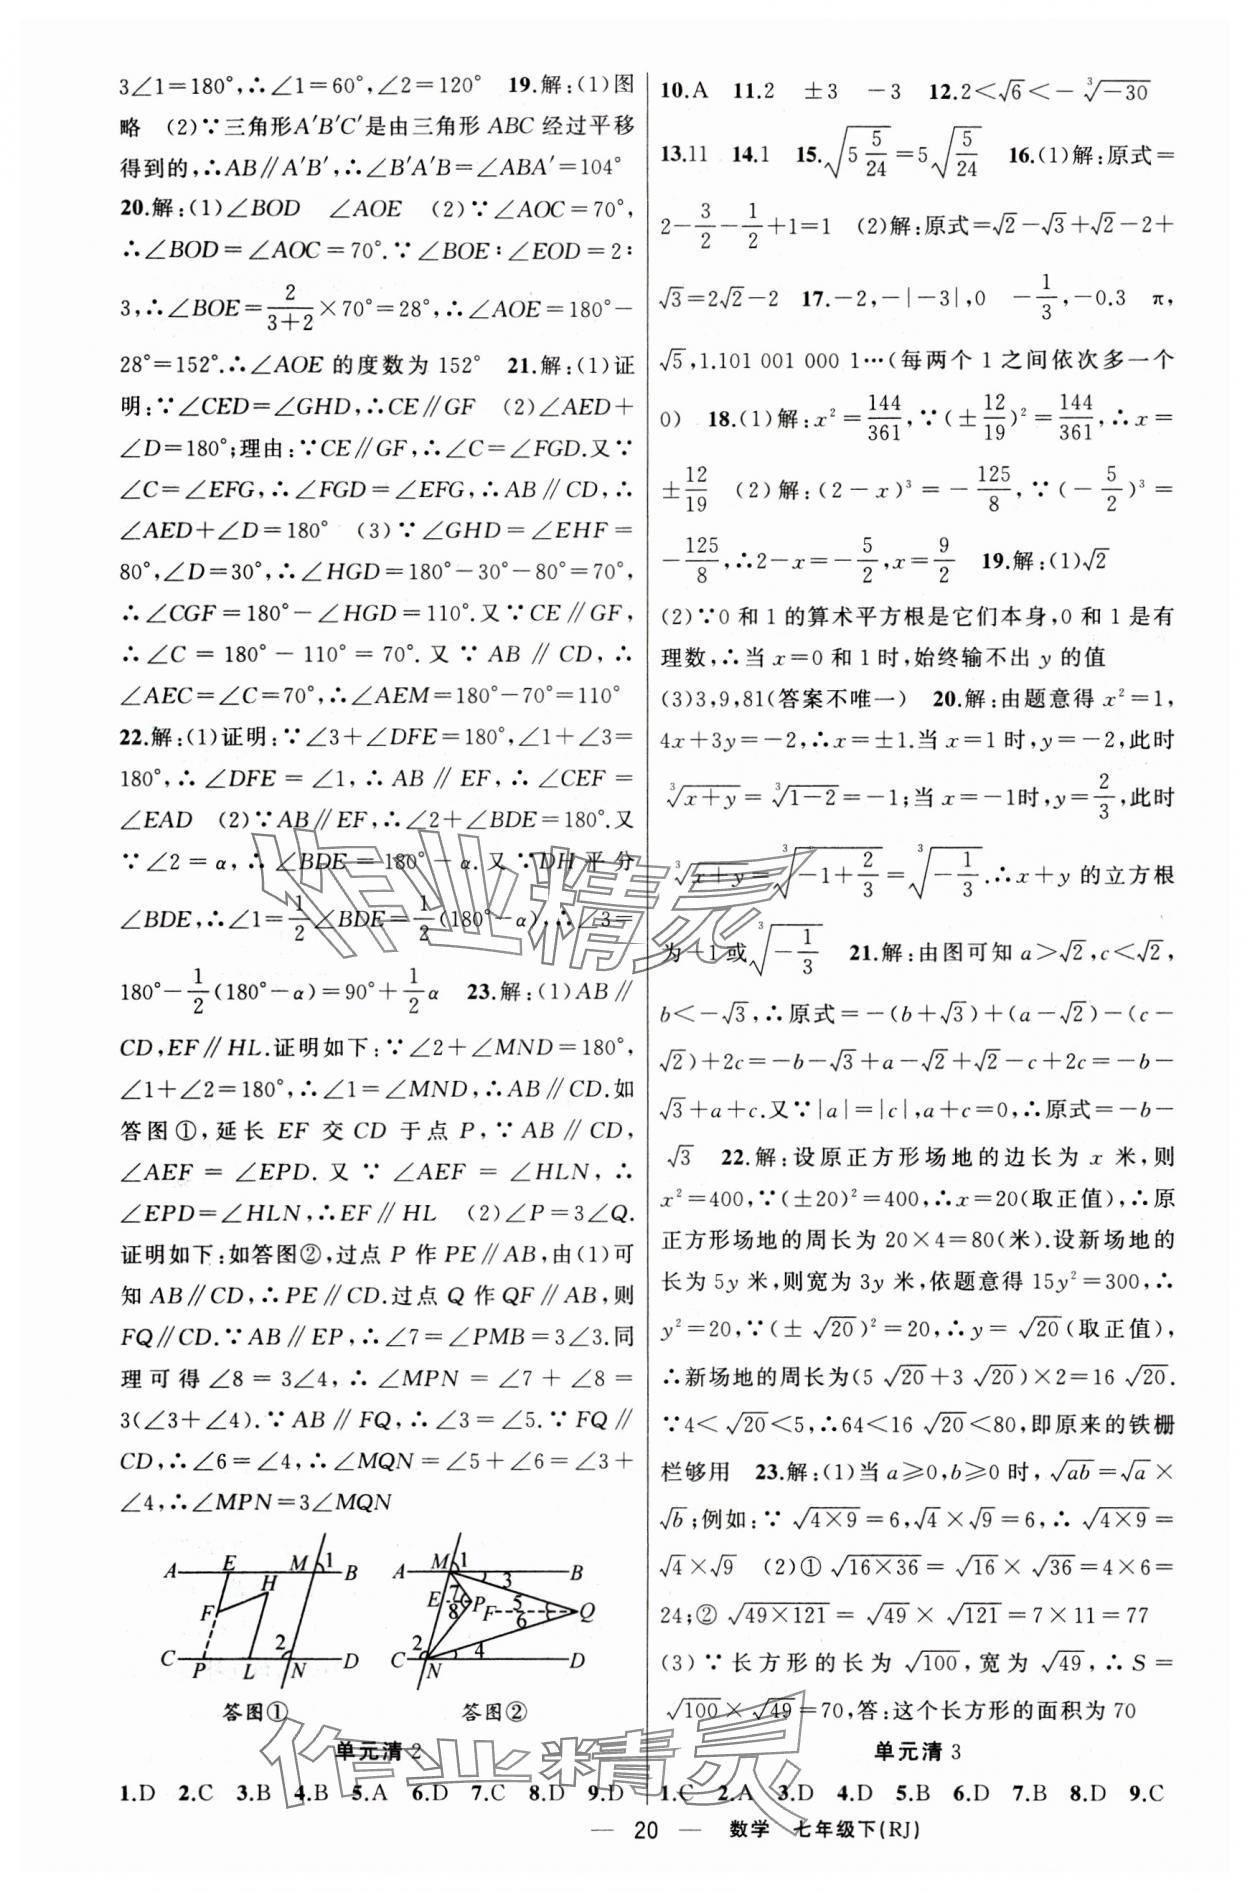 3∠1=180°,∴∠1=60°,∠2=120° 19.解:(1)图
略 (2)∵三角形A′B′C′是由三角形 ABC 经过平移
得到的,∴AB∥A′B′,∴∠B′A′B=∠ABA′=104°
20.解:(1)∠BOD ∠AOE (2)∵∠AOC=70°,
∴∠BOD=∠AOC=70°.∵∠BOE∶∠EOD=2∶
3,∴∠BOE=2/(3+2)×70°=28°,∴∠AOE=180°-
28°=152°.∴∠AOE 的度数为 152° 21.解:(1)证
明:∵∠CED=∠GHD,∴CE∥GF (2)∠AED+
∠D=180°;理由:∵CE∥GF,∴∠C=∠FGD.又∵
∠C=∠EFG,∴∠FGD=∠EFG,∴AB∥CD,∴
∠AED+∠D=180° (3)∵∠GHD=∠EHF=
80°,∠D=30°,∴∠HGD=180°-30°-80°=70°,
∴∠CGF=180°-∠HGD=110°.又∵CE∥GF,
∴∠C=180°-110°=70°.又∵AB∥CD,∴
∠AEC=∠C=70°,∴∠AEM=180°-70°=110°
22.解:(1)证明:∵∠3+∠DFE=180°,∠1+∠3=
180°,∴∠DFE=∠1,∴AB∥EF,∴∠CEF=
∠EAD (2)∵AB∥EF,∴∠2+∠BDE=180°.又
∵∠2=α,∴∠BDE=180°-α.又∵DH 平分
∠BDE,∴∠1=1/2∠BDE=1/2(180°-α),∴∠3=
180°-1/2(180°-α)=90°+1/2α 23.解:(1)AB∥
CD,EF∥HL.证明如下:∵∠2+∠MND=180°,
∠1+∠2=180°,∴∠1=∠MND,∴AB∥CD.如
答图①,延长 EF 交 CD 于点 P,∵AB∥CD,
∠AEF=∠EPD.又∵∠AEF=∠HLN,∴
∠EPD=∠HLN,∴EF∥HL (2)∠P=3∠Q.
证明如下:如答图②,过点 P 作 PE∥AB,由(1)可
知 AB∥CD,∴PE∥CD.过点 Q 作 QF∥AB,则
FQ∥CD.∵AB∥EP,∴∠7=∠PMB=3∠3.同
理可得∠8=3∠4,∴∠MPN=∠7+∠8=
3(∠3+∠4).∵AB∥FQ,∴∠3=∠5.∵FQ∥
CD,∴∠6=∠4,∴∠MQN=∠5+∠6=∠3+
∠4,∴∠MPN=3∠MQN
A E M 1 B H F C P L 2 N D
A M 1 3 B E 7 P 8 F 5 6 Q C 2 N 4 D
答图① 答图②
单元清 2
1.D 2.C 3.B 4.B 5.A 6.D 7.C 8.D 9.D
10.A 11.2 ±3 -3 12.2<√6<-∛(-30)
13.11 14.1 15.√(5 5/24)=5√(5/24) 16.(1)解:原式=
2-3/2-1/2+1=1 (2)解:原式=√2-√3+√2-2+
√3=2√2-2 17.-2,-|-3|,0 -1/3,-0.3 π,
√5,1.101 001 000 1…(每两个 1 之间依次多一个
0) 18.(1)解:x²=144/361,∵(±12/19)²=144/361,∴x=
±12/19 (2)解:(2-x)³=-125/8,∵(-5/2)³=
-125/8,∴2-x=-5/2,x=9/2 19.解:(1)√2
(2)∵0 和 1 的算术平方根是它们本身,0 和 1 是有
理数,∴当 x=0 和 1 时,始终输不出 y 的值
(3)3,9,81(答案不唯一) 20.解:由题意得 x²=1,
4x+3y=-2,∴x=±1.当 x=1 时,y=-2,此时
∛(x+y)=∛(1-2)=-1;当 x=-1时,y=2/3,此时
∛(x+y)=∛(-1+2/3)=∛(-1/3).∴x+y 的立方根
为-1 或∛(-1/3) 21.解:由图可知 a>√2,c<√2,
b<-√3,∴原式=-(b+√3)+(a-√2)-(c-
√2)+2c=-b-√3+a-√2+√2-c+2c=-b-
√3+a+c.又∵|a|=|c|,a+c=0,∴原式=-b-
√3 22.解:设原正方形场地的边长为 x 米,则
x²=400,∵(±20)²=400,∴x=20(取正值),∴原
正方形场地的周长为 20×4=80(米).设新场地的
长为 5y 米,则宽为 3y 米,依题意得 15y²=300,∴
y²=20,∵(±√20)²=20,∴y=√20(取正值),
∴新场地的周长为(5√20+3√20)×2=16√20.
∵4<√20<5,∴64<16√20<80,即原来的铁栅
栏够用 23.解:(1)当 a≥0,b≥0 时,√(ab)=√a×
√b;例如:∵√(4×9)=6,√4×√9=6,∴√(4×9)=
√4×√9 (2)①√(16×36)=√16×√36=4×6=
24;②√(49×121)=√49×√121=7×11=77
(3)∵长方形的长为√100,宽为√49,∴S=
√100×√49=70,答:这个长方形的面积为 70
单元清 3
1.C 2.A 3.D 4.D 5.B 6.D 7.B 8.D 9.C
— 20 — 数学 七年级下(RJ)
作业精灵
作业精灵